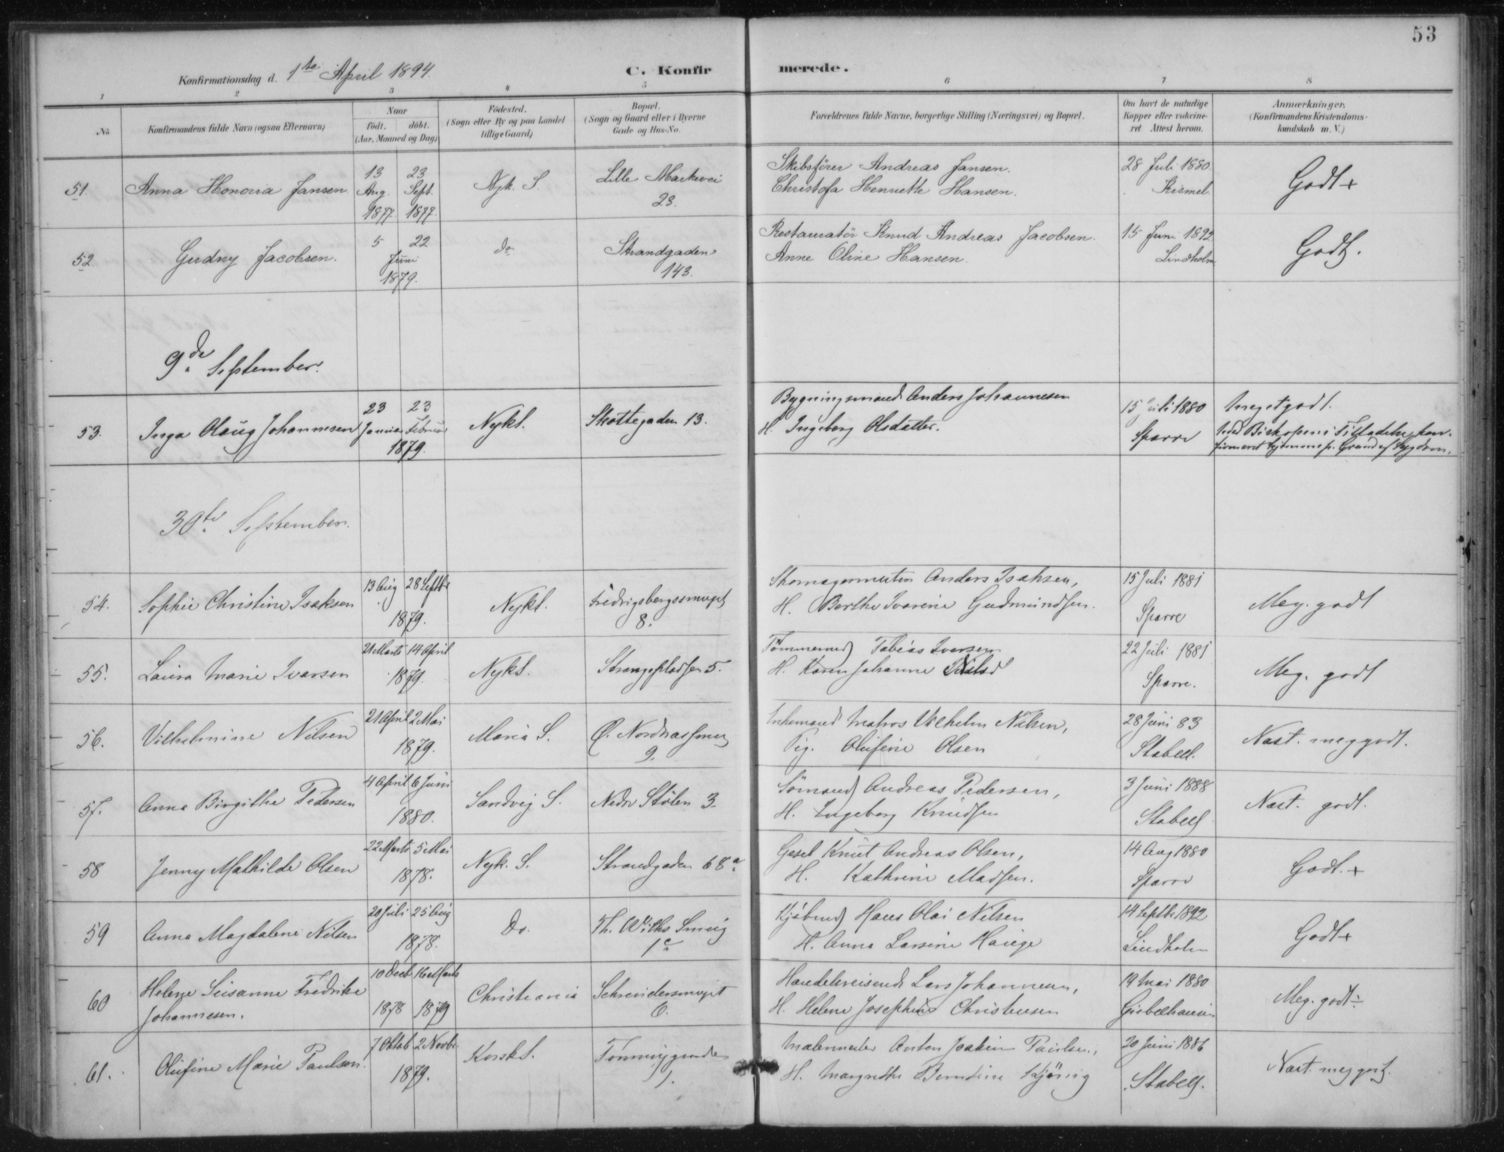 53
Konfirmationsdag d. 1ste April 1894.
C. Konfirmerede.
1 2 3 4 5 6 7 8
No.
Konfirmandens fulde Navn (ogsaa Efternavn)
Naar
født. døbt.
(Aar, Maaned og Dag)
Fødested.
(Sogn eller By og paa Landet
tillige Gaard)
Bopæl.
(Sogn og Gaard eller i Byerne
Gade og Hus-No.
Forældrenes fulde Navne, borgerlige Stilling (Næringsvei) og Bopæl.
Om havt de naturlige
Kopper eller vaksine-
ret Attest herom.
Anmærkninger.
(Konfirmandens Kristendoms-
kundskab m. V.)
51 Anna Honoria Jansen 13 Aug. 1877 23 Sept. 1877 Nyk. S. Lille Markevei 23. Skibsfører Andreas Jansen. 28 Juli 1880 Godt +
Christofa Henriette Hansen.
52 Gudny Jacobsen. 5 22 Juni 1879. do. Strandgaden 143. Restauratør Knud Andreas Jacobsen. 15 Juni 1892 Lindholm Godt.
Anne Oline Hansen.
9de September.
53. Inga Olaug Johannesen 23 Januar 23 Februar 1879. Nykt. Skottegaden 13. Bygningsmand Anders Johannesen 15 Juli 1880 Sparre Meget godt.
H. Ingeborg Olsdatter. Ved Biskopens Tilladelse kon-
firmeret hjemme p. Grund af Sygdom.
30te September.
54. Sophie Christine Isaksen 13 Aug 28 Septb 1879. Nykt. Fredrigsbergssmuget 8. Skomagermester Anders Isaksen, 15 Juli 1881 Sparre Meg. godt
H. Berthe Ivarine Gudmundsen.
55. Laura Marie Ivarsen 21 Marts 14 April 1879. Nykt. Strangepladsen 5. Tømmermd Tobias Iversen 22 Juli 1881 Sparre. Meg. godt
H. Karen Johanne
56. Vilhelmine Nilsen 21 April 2 Mai 1879. Maria S. Ø. Nordnæssmug 9. Enkemand Matros Vilhelm Nilsen, 28 Juni 83 Stabell. Næst. meg godt.
Pig. Olufine Olsen
57. Anna Birgithe Pedersen 4 April 6 Juni 1880. Sandvig S. Nedre Stølen 3. Sømand Andreas Pedersen, 3 Juni 1888 Stabell Næst. godt.
H. Ingeborg Knudsen
58 Jenny Mathilde Olsen 22 Marts 5 Mai 1878. Nyk. S. Strandgaden 68a. Gesel Knut Andreas Olsen, 14 Aug 1880 Sparre Godt. +
H. Kathrine Madsen.
59 Anna Magdalene Nilsen 20 Juli 25 Aug 1878. Do. Th. Withs Smug 1c. Kjøbmd Hans Olai Nilsen 14 Septb. 1892 Lindholm Godt +
H. Anna Larsine Hauge
60 Helene Susanne Fredrike Johannesen. 10 Decb 1878 16 Marts 1879 Christiania Schreudersmuget 6. Handelsreisende Lars Johannesen, 19 Mai 1880 Meg. godt ÷
H. Helene Josephine Christensen
61. Olufine Marie Paulsen. 7 Oktob 2 Novbr 1879. Korskt. Tønninggaarden 1. Malermester Anton Joakim Paulsen, 20 Juni 1886 Stabell. Næst. meg godt.
H. Margrethe Berndine